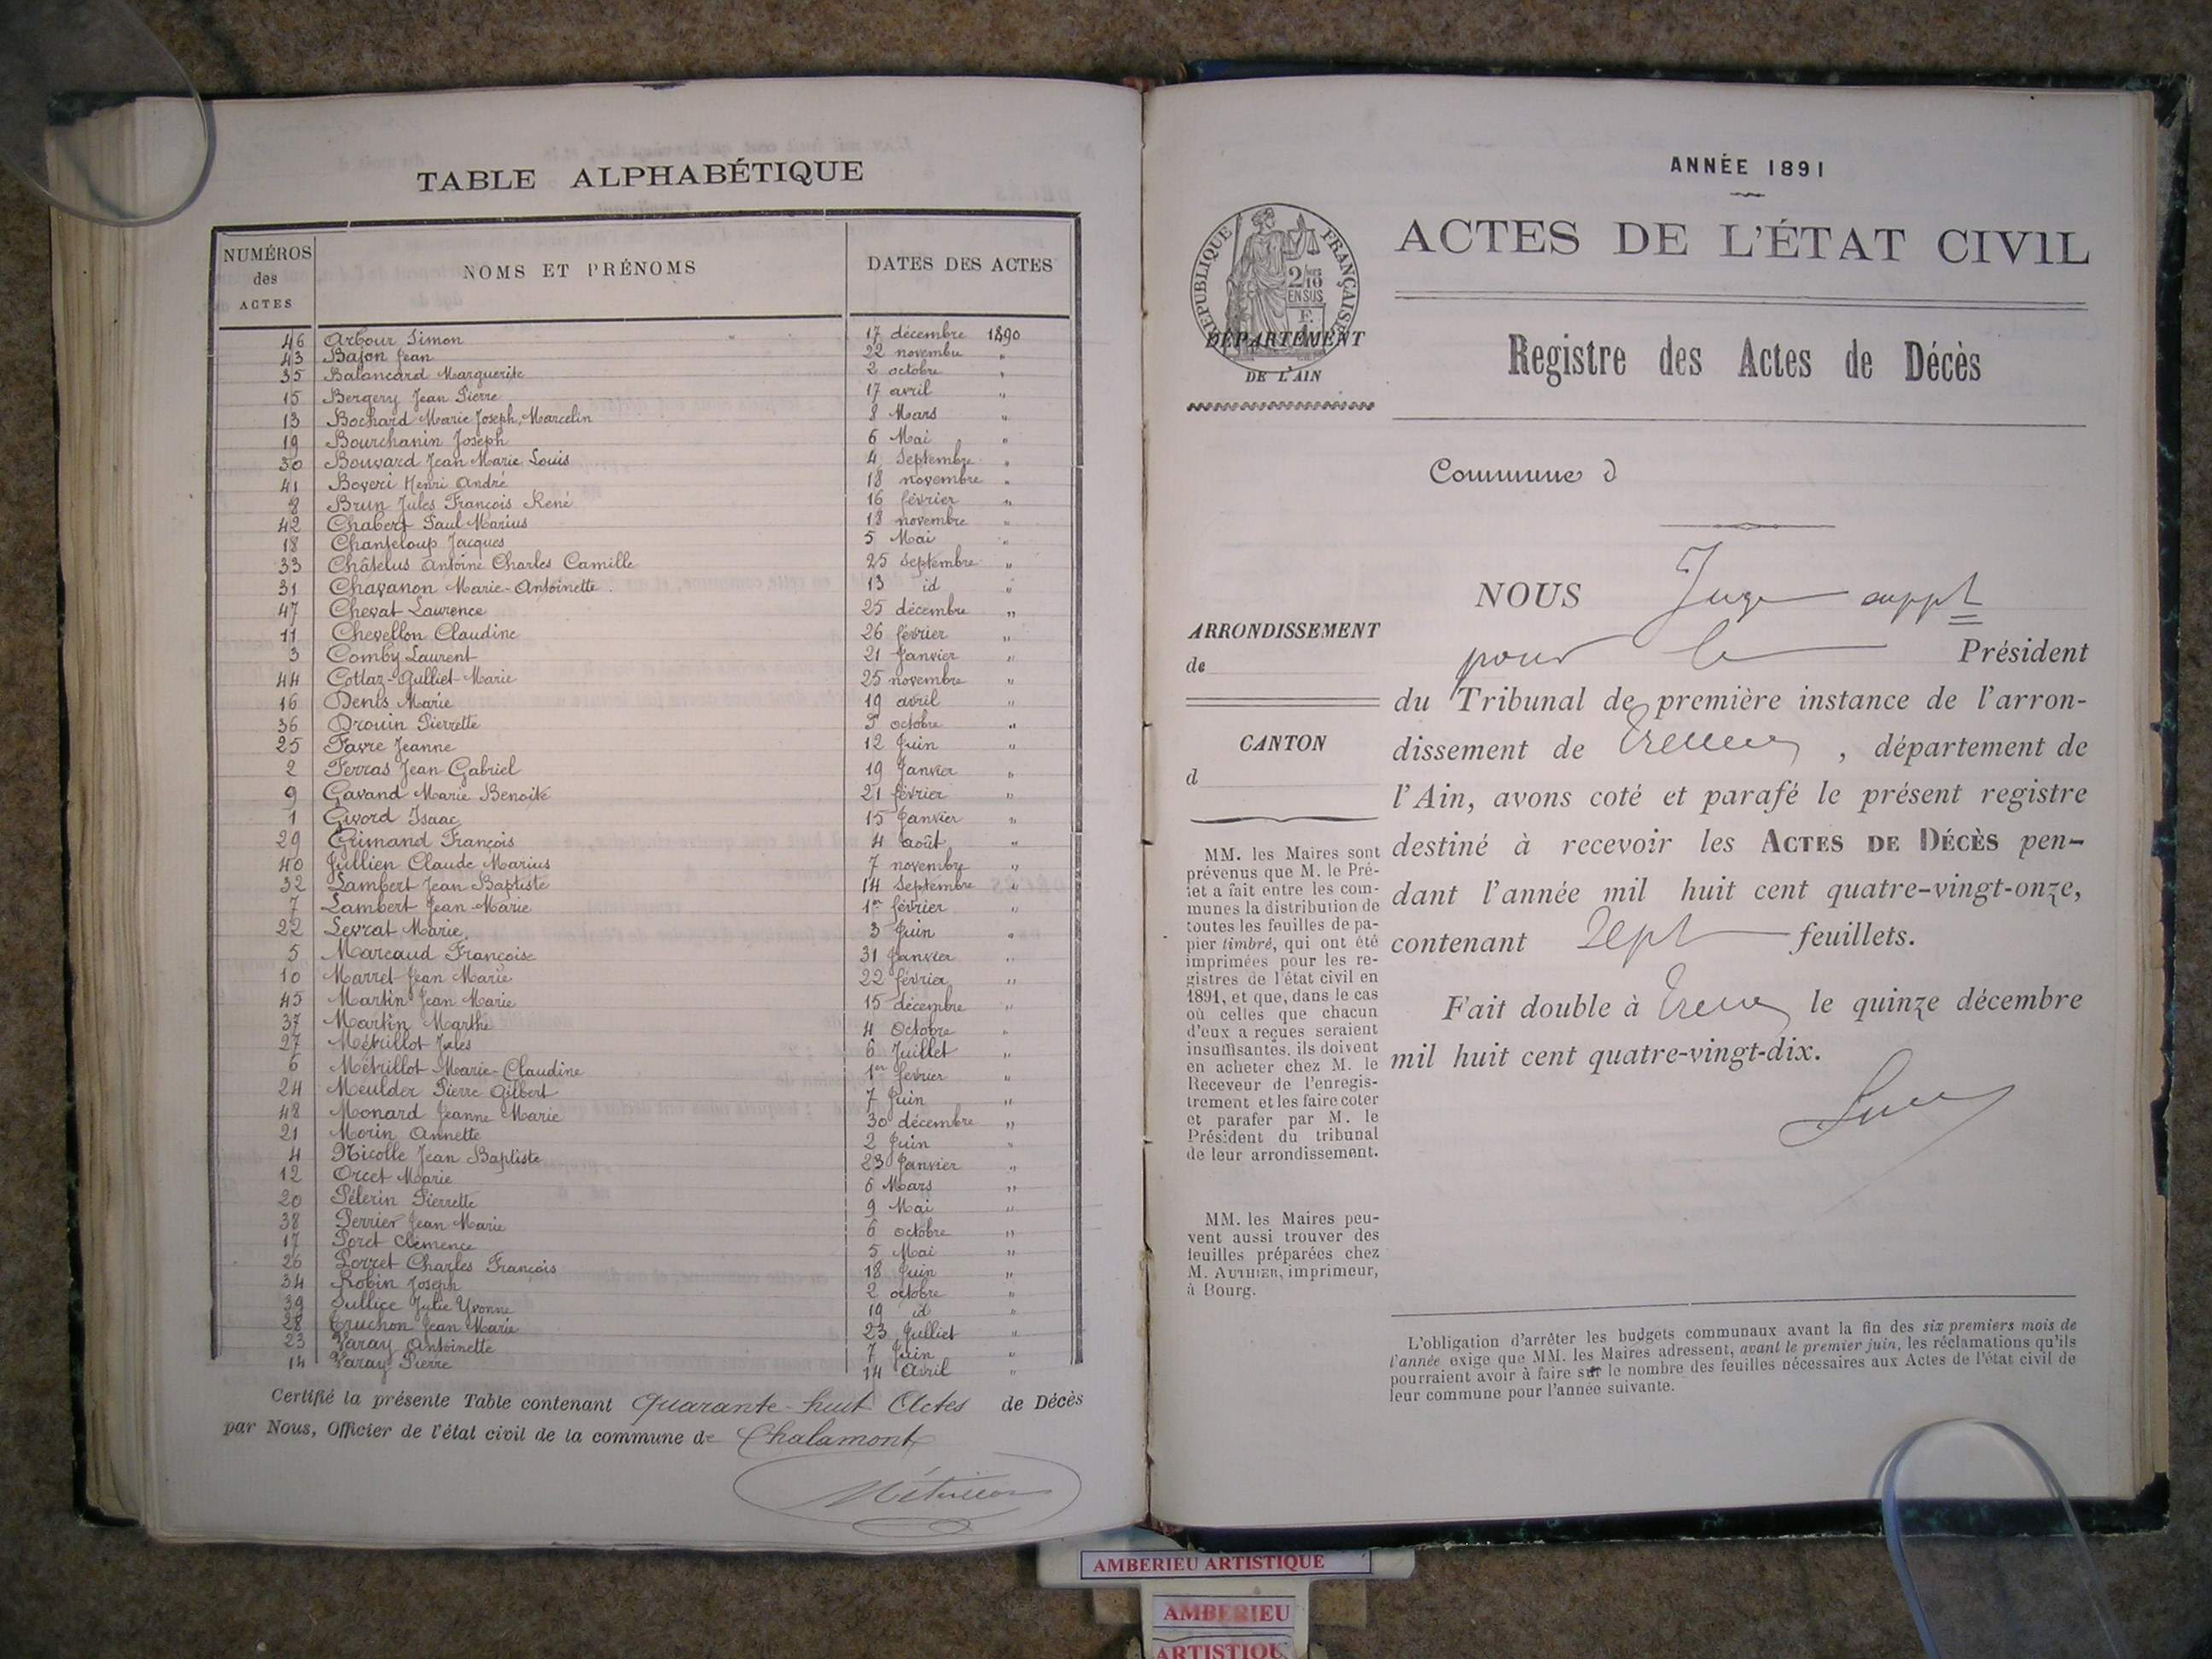 TABLE ALPHABÉTIQUE
NUMÉROS des ACTES | NOMS ET PRÉNOMS | DATES DES ACTES
46 Arbour Simon 17 décembre 1890
43 Bajon Jean 22 novembre "
35 Balancard Marguerite 2 octobre "
15 Bergery Jean Pierre 17 avril "
13 Bochard Marie Joseph, Marcelin 8 Mars "
19 Bourchanin Joseph 6 Mai "
30 Bouvard Jean Marie Louis 4 Septembre "
41 Boveri Henri André 18 novembre "
8 Brun Jules François René 16 février "
42 Chabert Paul Marius 18 novembre "
18 Chanteloup Jacques 5 Mai "
33 Châtelus Antoine Charles Camille 25 Septembre "
31 Chavanon Marie-Antoinette 13 id "
47 Chevat Laurence 25 décembre "
11 Chevellon Claudine 26 février "
3 Comby Laurent 21 Janvier "
44 Cottaz-Gulliet Marie 25 novembre "
16 Denis Marie 19 avril "
36 Drouin Pierrette 5 octobre "
25 Favre Jeanne 12 Juin "
2 Ferras Jean Gabriel 19 Janvier "
9 Gavand Marie Benoite 21 février "
1 Givord Isaac 15 Janvier "
29 Grimand François 4 août "
40 Jullien Claude Marius 7 novembre "
32 Lambert Jean Baptiste 14 Septembre "
7 Lambert Jean Marie 1er février "
22 Levrat Marie 3 Juin "
5 Marcaud Françoise 31 Janvier "
10 Marret Jean Marie 22 février "
45 Martin Jean Marie 15 décembre "
37 Martin Marthe 4 Octobre "
27 Métrillot Jules 6 Juillet "
6 Métrillot Marie-Claudine 1er février "
24 Meulder Pierre Gilbert 7 Juin "
48 Monard Jeanne Marie 30 décembre "
21 Morin Annette 2 Juin "
4 Nicolle Jean Baptiste 23 Janvier "
12 Orcet Marie 6 Mars "
20 Pélerin Pierrette 9 Mai "
38 Perrier Jean Marie 6 octobre "
17 Poret Clémence 5 Mai "
26 Porret Charles François 18 Juin "
34 Robin Joseph 2 octobre "
39 Sullice Julie Yvonne 19 id "
28 Truchon Jean Marie 23 Juillet "
23 Varay Antoinette 7 Juin "
14 Varay Pierre 14 Avril "
Certifié la présente Table contenant Quarante-huit Actes de Décès
par Nous, Officier de l'état civil de la commune de Chalamont
ANNÉE 1891
ACTES DE L'ÉTAT CIVIL
REPUBLIQUE FRANÇAISE
2/10 EN SUS
DÉPARTEMENT
DE L'AIN
Registre des Actes de Décès
Commune d
ARRONDISSEMENT
de
CANTON
d
MM. les Maires sont
prévenus que M. le Pré-
fet a fait entre les com-
munes la distribution de
toutes les feuilles de pa-
pier timbré, qui ont été
imprimées pour les re-
gistres de l'état civil en
1891, et que, dans le cas
où celles que chacun
d'eux a reçues seraient
insuffisantes, ils doivent
en acheter chez M. le
Receveur de l'enregis-
trement et les faire coter
et parafer par M. le
Président du tribunal
de leur arrondissement.
MM. les Maires peu-
vent aussi trouver des
feuilles préparées chez
M. AUTHIER, imprimeur,
à Bourg.
NOUS Juge suppt
pour le Président
du Tribunal de première instance de l'arron-
dissement de Trévoux, département de
l'Ain, avons coté et parafé le présent registre
destiné à recevoir les ACTES DE DÉCÈS pen-
dant l'année mil huit cent quatre-vingt-onze,
contenant Sept feuillets.
Fait double à Trévoux le quinze décembre
mil huit cent quatre-vingt-dix.
L'obligation d'arrêter les budgets communaux avant la fin des six premiers mois de
l'année exige que MM. les Maires adressent, avant le premier juin, les réclamations qu'ils
pourraient avoir à faire sur le nombre des feuilles nécessaires aux Actes de l'état civil de
leur commune pour l'année suivante.
AMBERIEU ARTISTIQUE
AMBERIEU
ARTISTIQU